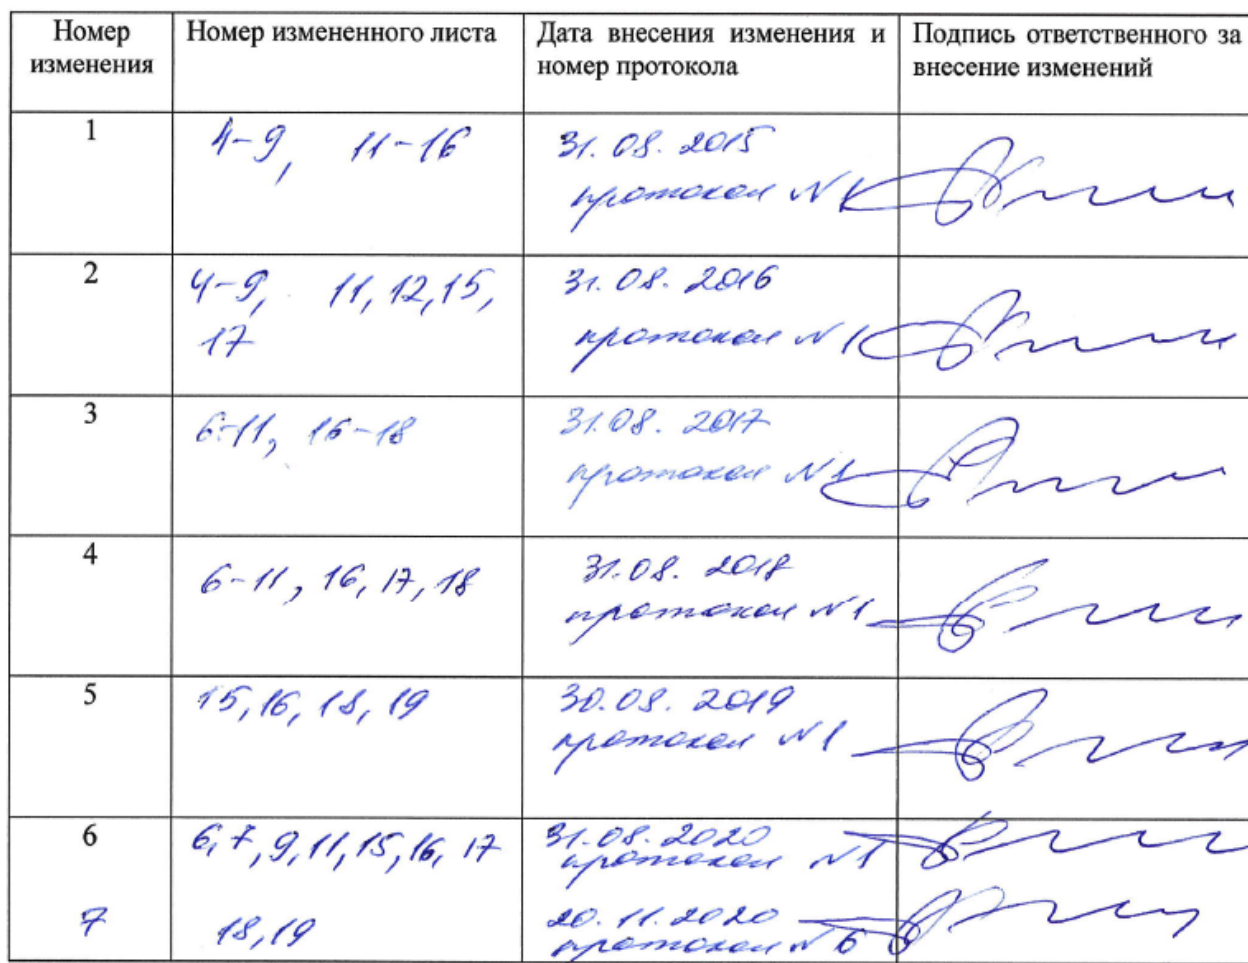 Номер изменения
Номер измененного листа
Дата внесения изменения и номер протокола
Подпись ответственного за внесение изменений
1
4-9, 11-16
31.08.2015
протокол №1
2
4-9, 11, 12, 15,
17
31.08.2016
протокол №1
3
6-11, 16-18
31.08.2017
протокол №1
4
6-11, 16, 17, 18
31.08.2018
протокол №1
5
15, 16, 18, 19
30.08.2019
протокол №1
6
6, 7, 9, 11, 15, 16, 17
31.08.2020
протокол №1
7
18, 19
20.11.2020
протокол №6